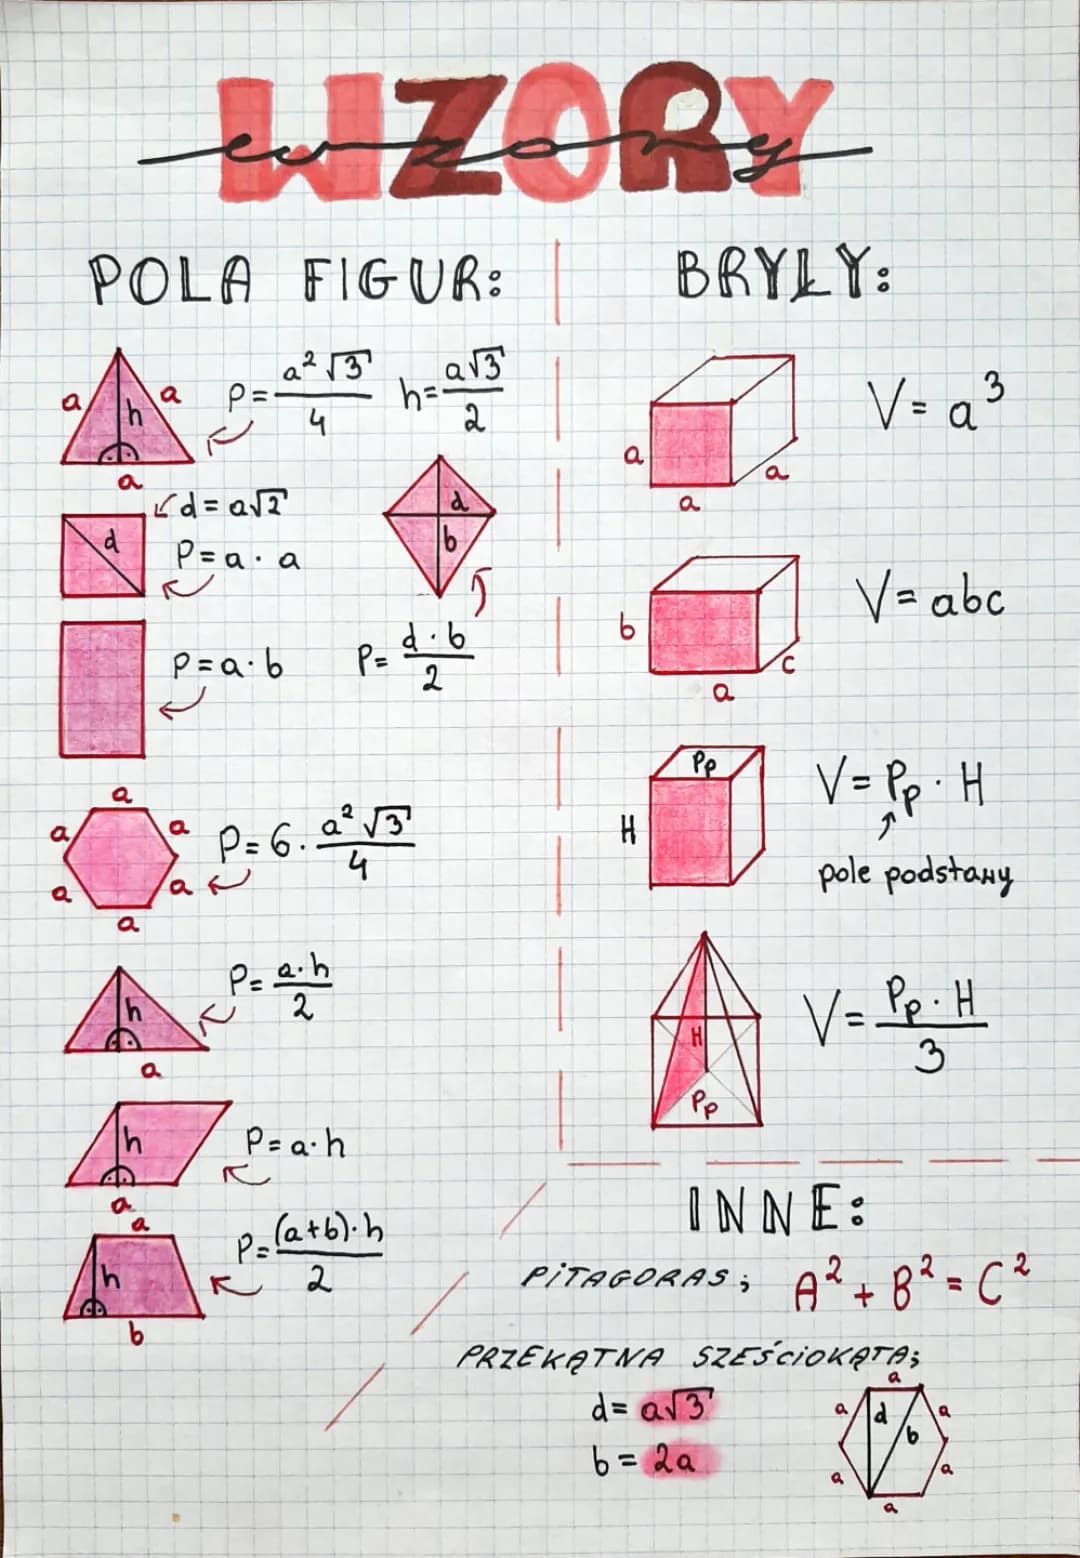 WZORY
wzory
POLA FIGUR:
a a h a
P = a²√3 / 4
h = a√3 / 2
d = a√2
d
P = a · a
d
b
P = d · b / 2
P = a · b
a a a a a a
P = 6 · a²√3 / 4
h a
P = a · h / 2
h a
P = a · h
a h b
P = (a+b) · h / 2
BRYŁY:
a a a
V = a³
b a c
V = abc
Pp
H
V = Pp · H
pole podstawy
H
Pp
V = Pp · H / 3
INNE:
PITAGORAS; A² + B² = C²
PRZEKĄTNA SZEŚCIOKĄTA;
d = a√3
b = 2a
a a d b a a a a